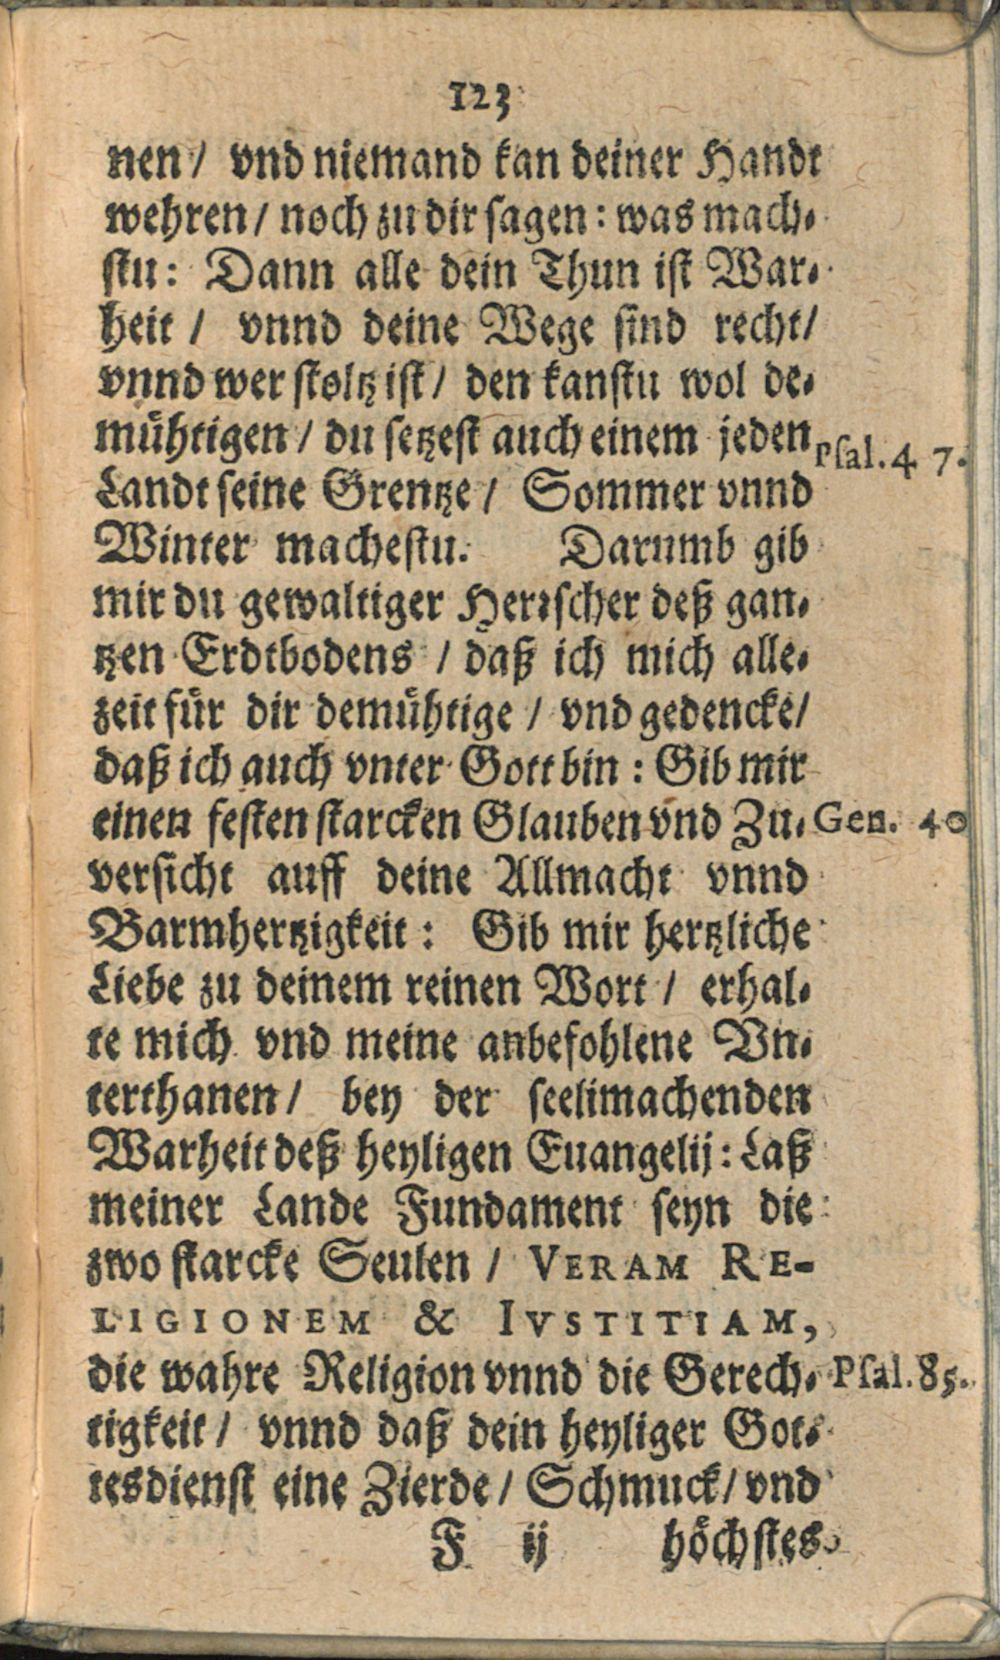 123
nen / vnd niemand kan deiner Handt
wehren / noch zu dir sagen : was mach-
stu : Dann alle dein Thun ist War-
heit / vnnd deine Wege sind recht /
vnnd wer stoltz ist / den kanstu wol de-
mühtigen / du setzest auch einem jeden
Psal. 47.
Landt seine Grentze / Sommer vnnd
Winter machestu. Darumb gib
mir du gewaltiger Herrscher deß gan-
tzen Erdtbodens / daß ich mich alle-
zeit für dir demühtige / vnd gedencke /
daß ich auch vnter Gott bin : Gib mir
einen festen starcken Glauben vnd Zu-
Gen. 40
versicht auff deine Allmacht vnnd
Barmhertzigkeit : Gib mir hertzliche
Liebe zu deinem reinen Wort / erhal-
te mich vnd meine anbefohlene Vn-
terthanen / bey der seelimachenden
Warheit deß heyligen Euangelij : Laß
meiner Lande Fundament seyn die
zwo starcke Seulen / VERAM RE-
LIGIONEM & IVSTITIAM,
die wahre Religion vnnd die Gerech-
Psal. 85.
tigkeit / vnnd daß dein heyliger Got-
tesdienst eine Zierde / Schmuck / vnd
F ij höchstes